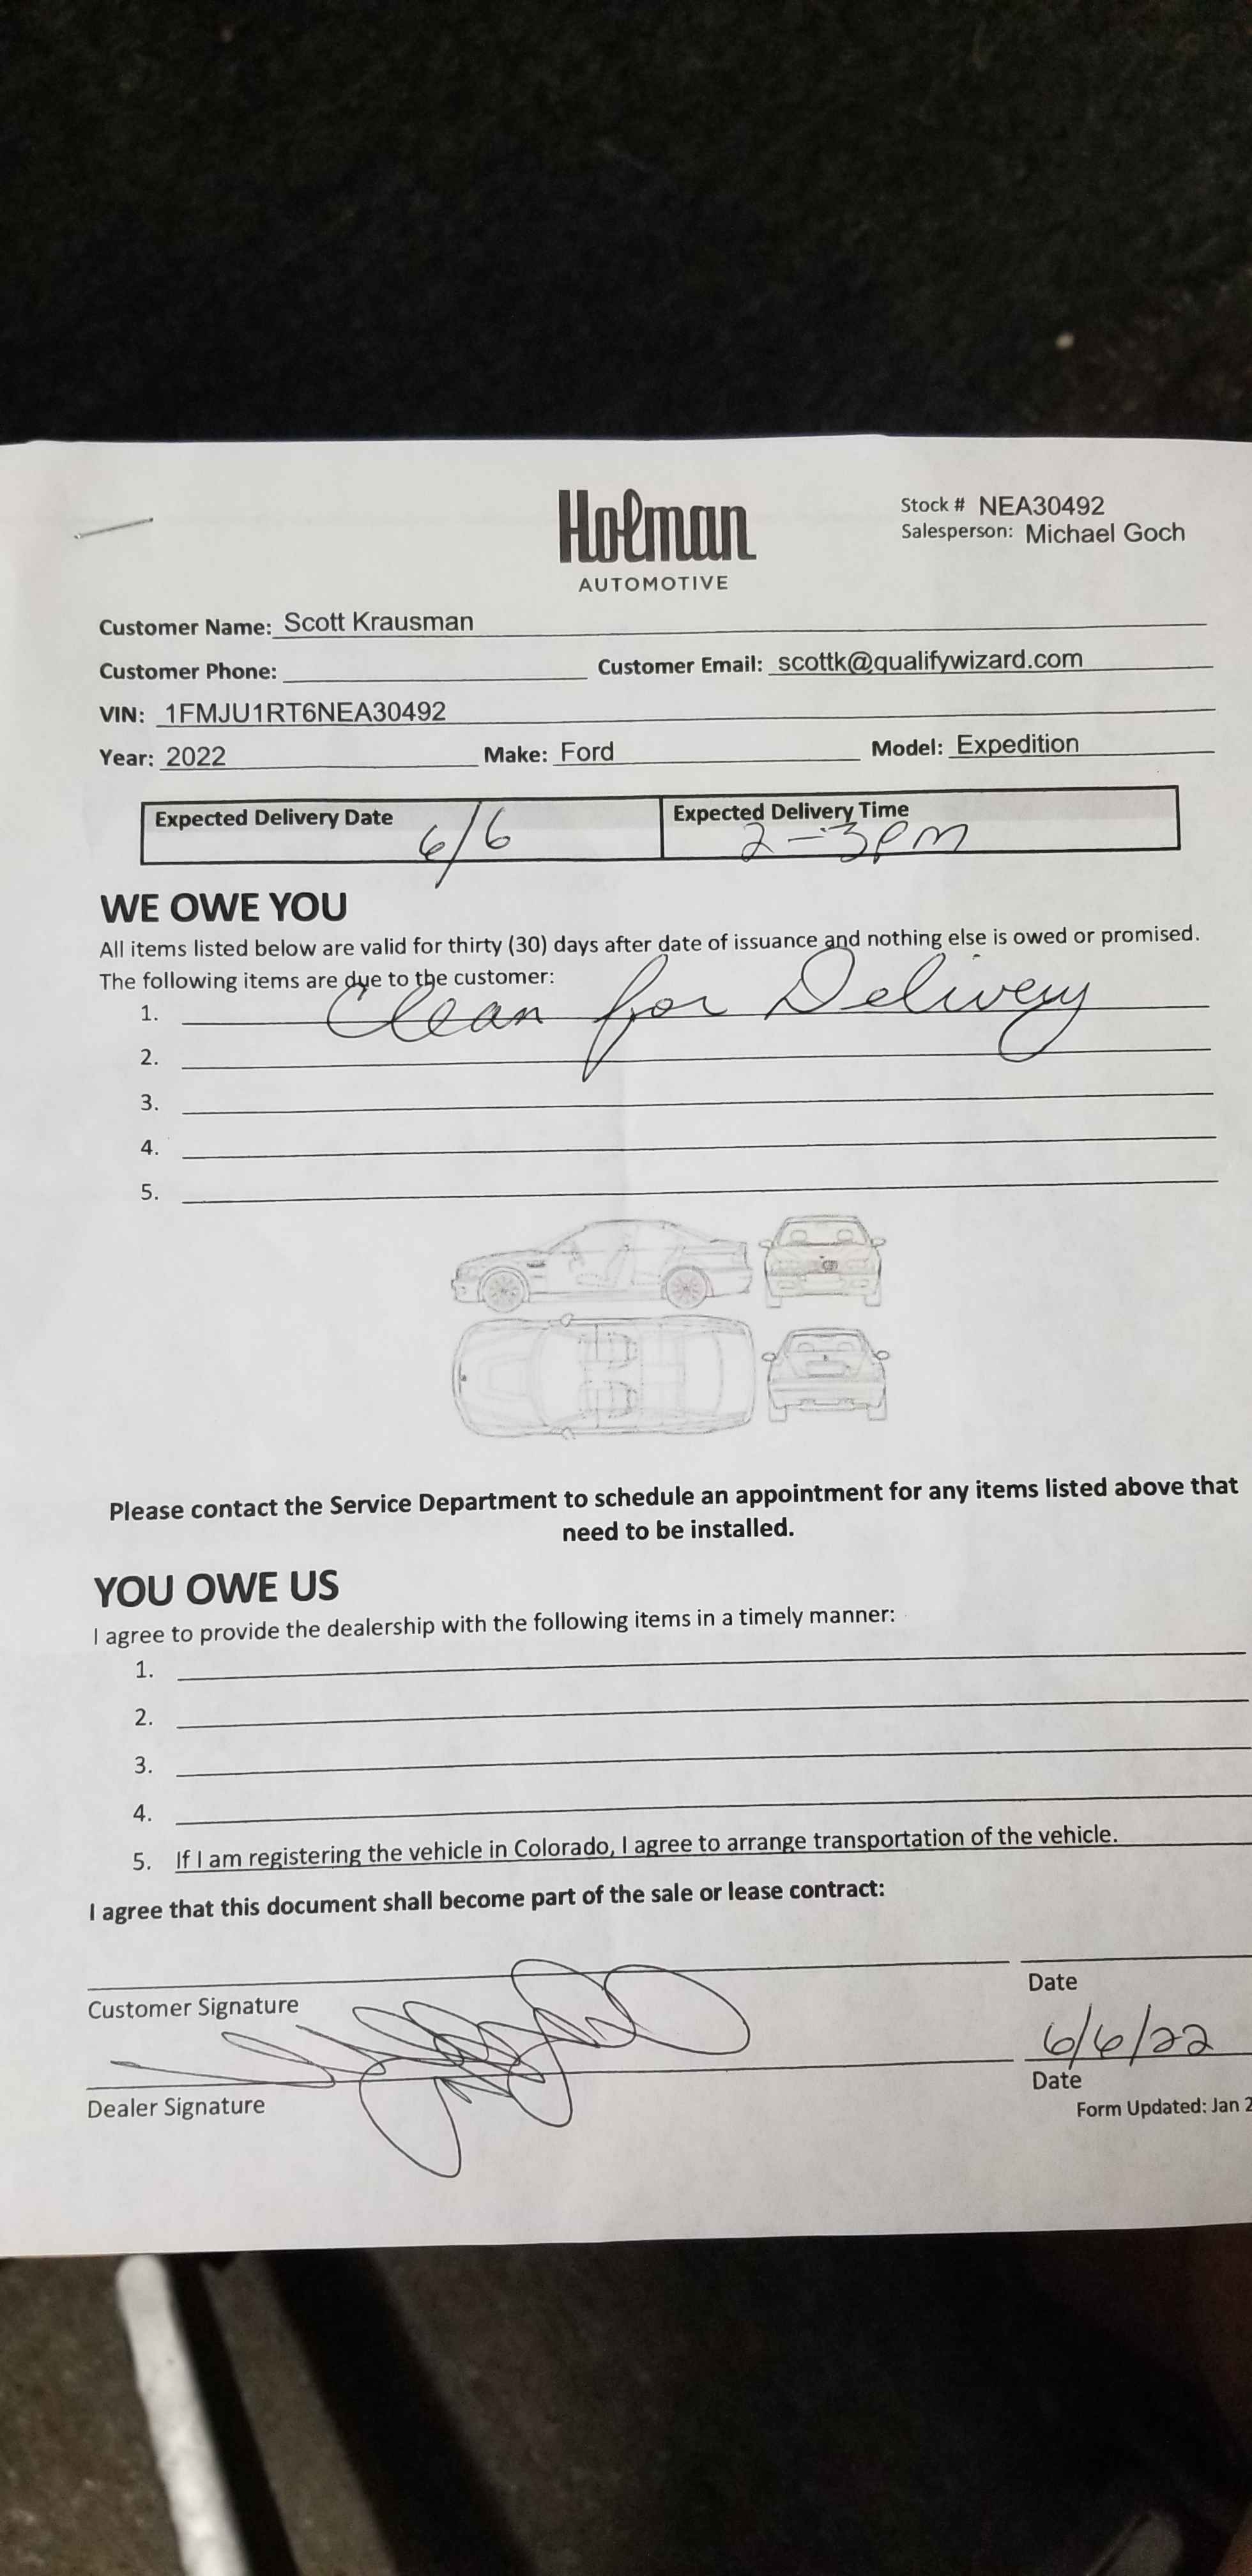 Holman
AUTOMOTIVE
Stock # NEA30492
Salesperson: Michael Goch
Customer Name: Scott Krausman
Customer Phone: Customer Email: scottk@qualifywizard.com
VIN: 1FMJU1RT6NEA30492
Year: 2022 Make: Ford Model: Expedition
Expected Delivery Date 6/6 Expected Delivery Time 2-3PM
WE OWE YOU
All items listed below are valid for thirty (30) days after date of issuance and nothing else is owed or promised.
The following items are due to the customer:
1. Clean for Delivery
2.
3.
4.
5.
Please contact the Service Department to schedule an appointment for any items listed above that
need to be installed.
YOU OWE US
I agree to provide the dealership with the following items in a timely manner:
1.
2.
3.
4.
5. If I am registering the vehicle in Colorado, I agree to arrange transportation of the vehicle.
I agree that this document shall become part of the sale or lease contract:
Customer Signature Date
6/6/22
Dealer Signature Date
Form Updated: Jan 2